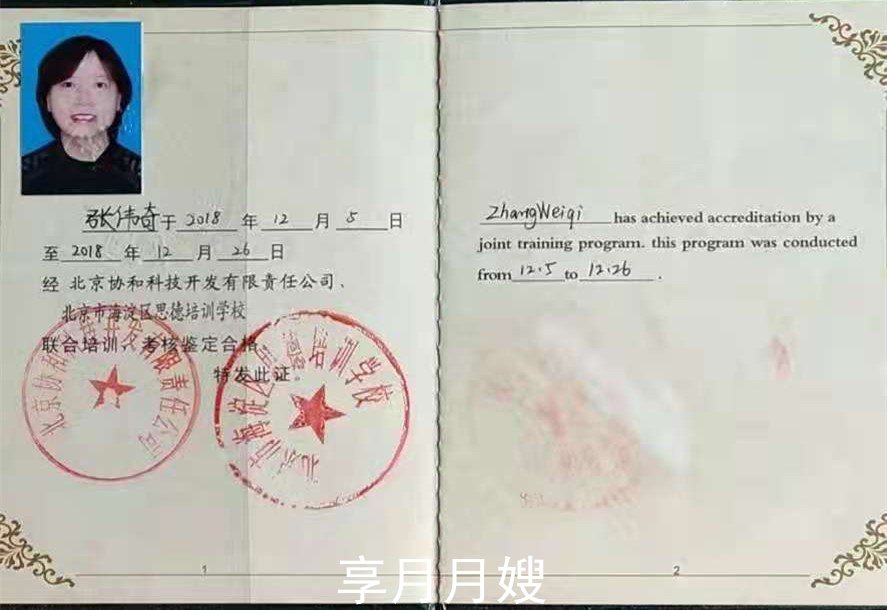 张伟奇于 2018 年 12 月 5 日
至 2018 年 12 月 26 日
经 北京协和科技开发有限责任公司、
北京市海淀区思德培训学校
联合培训、考核鉴定合格。
特发此证。
北京协和科技开发有限责任公司
北京市海淀区思德培训学校
1
ZhangWeiqi has achieved accreditation by a
joint training program. this program was conducted
from 12.5 to 12.26 .
2
享月月嫂